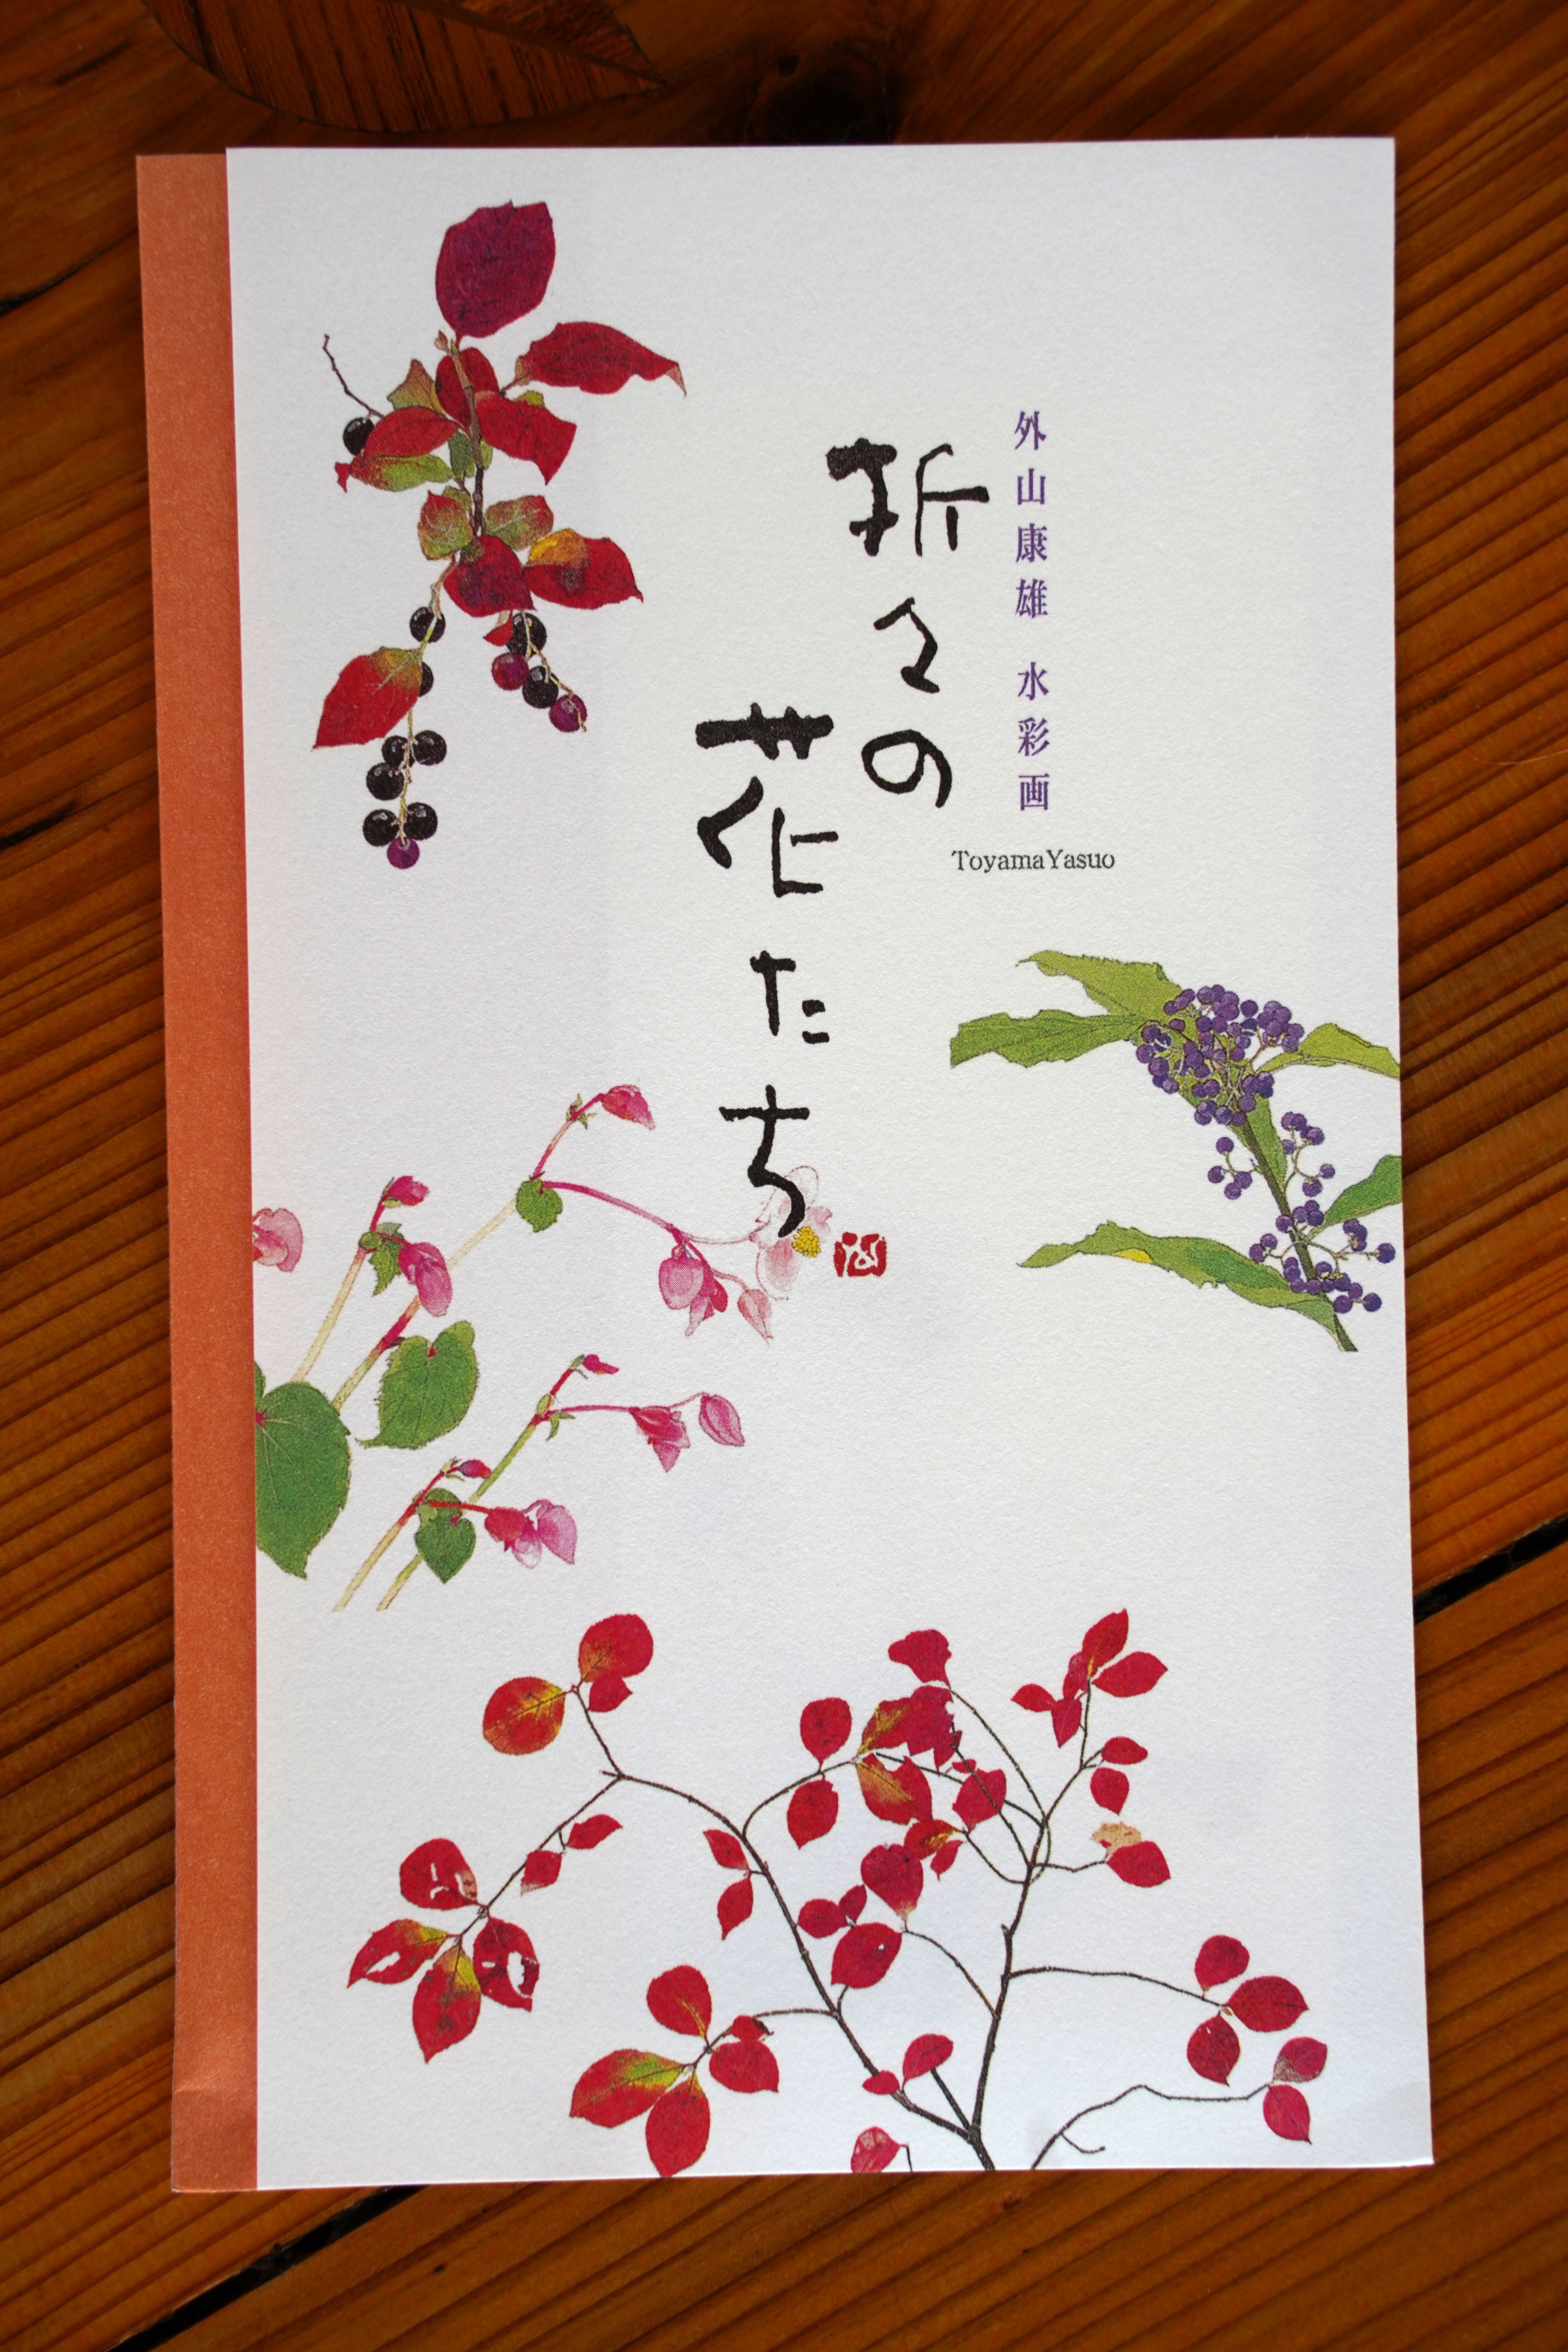 外山康雄 水彩画
折々の
花たち
ToyamaYasuo